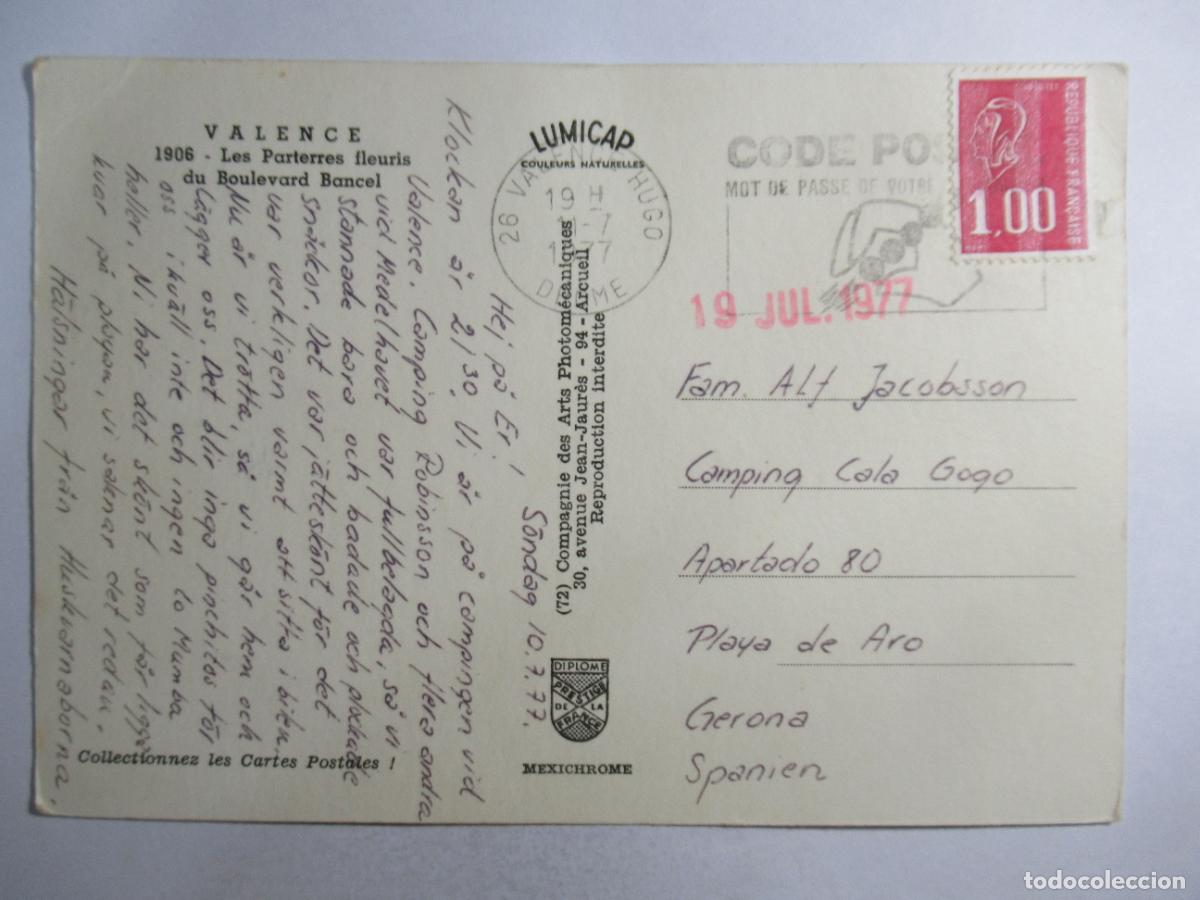 VALENCE
1906 - Les Parterres fleuris
du Boulevard Bancel
LUMICAP
COULEURS NATURELLES
26 VALENCE HUGO
19 H
7
DROME
CODE POS
MOT DE PASSE DE VOTRE
REPUBLIQUE FRANÇAISE
1,00
19 JUL. 1977
Hej på Er! Söndag 10.7.77.
Klockan är 2130. Vi är på campingen vid
Valence. Camping Robinsson och flera andra
vid Medelhavet var fullbelagda, så vi
stannade bara och badade och plockade
snäckor. Det var jätteskönt för det
var verkligen varmt att sitta i bilen.
Nu är vi trötta, så vi går hem och
lägger oss. Det blir inga pinchitos för
oss ikväll inte och ingen la Mumba
heller. Ni har det skönt som får ligga
kvar på playan, vi saknar det redan.
Hälsningar från Huskvarnaborna.
(72) Compagnie des Arts Photomécaniques
30, avenue Jean-Jaurès - 94 - Arcueil
Reproduction interdite
Fam. Alf Jacobsson
Camping Cala Gogo
Apartado 80
Playa de Aro
Gerona
Spanien
DIPLOME
PRESTIGE
DE LA
FRANCE
MEXICHROME
Collectionnez les Cartes Postales !
todocoleccion